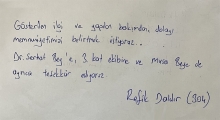 Gösterilen ilgi ve yapılan bakımdan dolayı
memnuniyetimizi belirtmek istiyoruz..
Dr. Serhat Bey'e, 3. kat ekibine ve Musa Beye de
ayrıca teşekkür ediyoruz.
Refik Daldır (304)